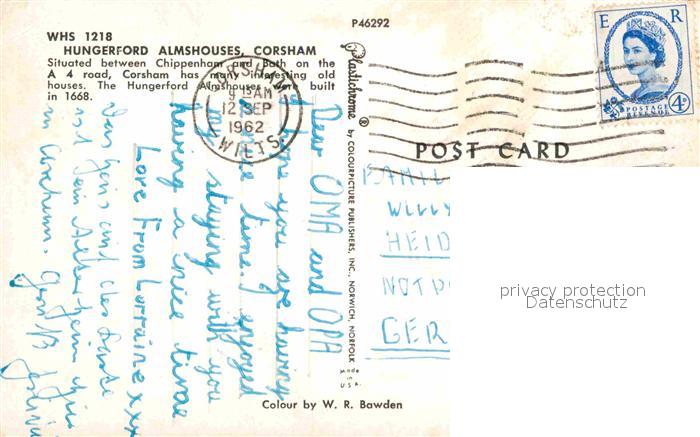 P46292
WHS 1218
HUNGERFORD ALMSHOUSES, CORSHAM
Situated between Chippenham and Bath on the
A 4 road, Corsham has many interesting old
houses. The Hungerford Almshouses were built
in 1668.
CORSHAM
9 15 AM
12 SEP
1962
WILTS
E R
POSTAGE
REVENUE
4D
POST CARD
Plastichrome ® by COLOURPICTURE PUBLISHERS, INC., NORWICH, NORFOLK
Made
in
U.S.A.
Dear OMA and OPA
I hope you are having
a nice time. I enjoyed
my staying with you
having a nice time
Love From Lorraine xxx
in Corsham.
FAMIL
WILLY
HEID
NOTP
GER
privacy protection
Datenschutz
Colour by W. R. Bawden